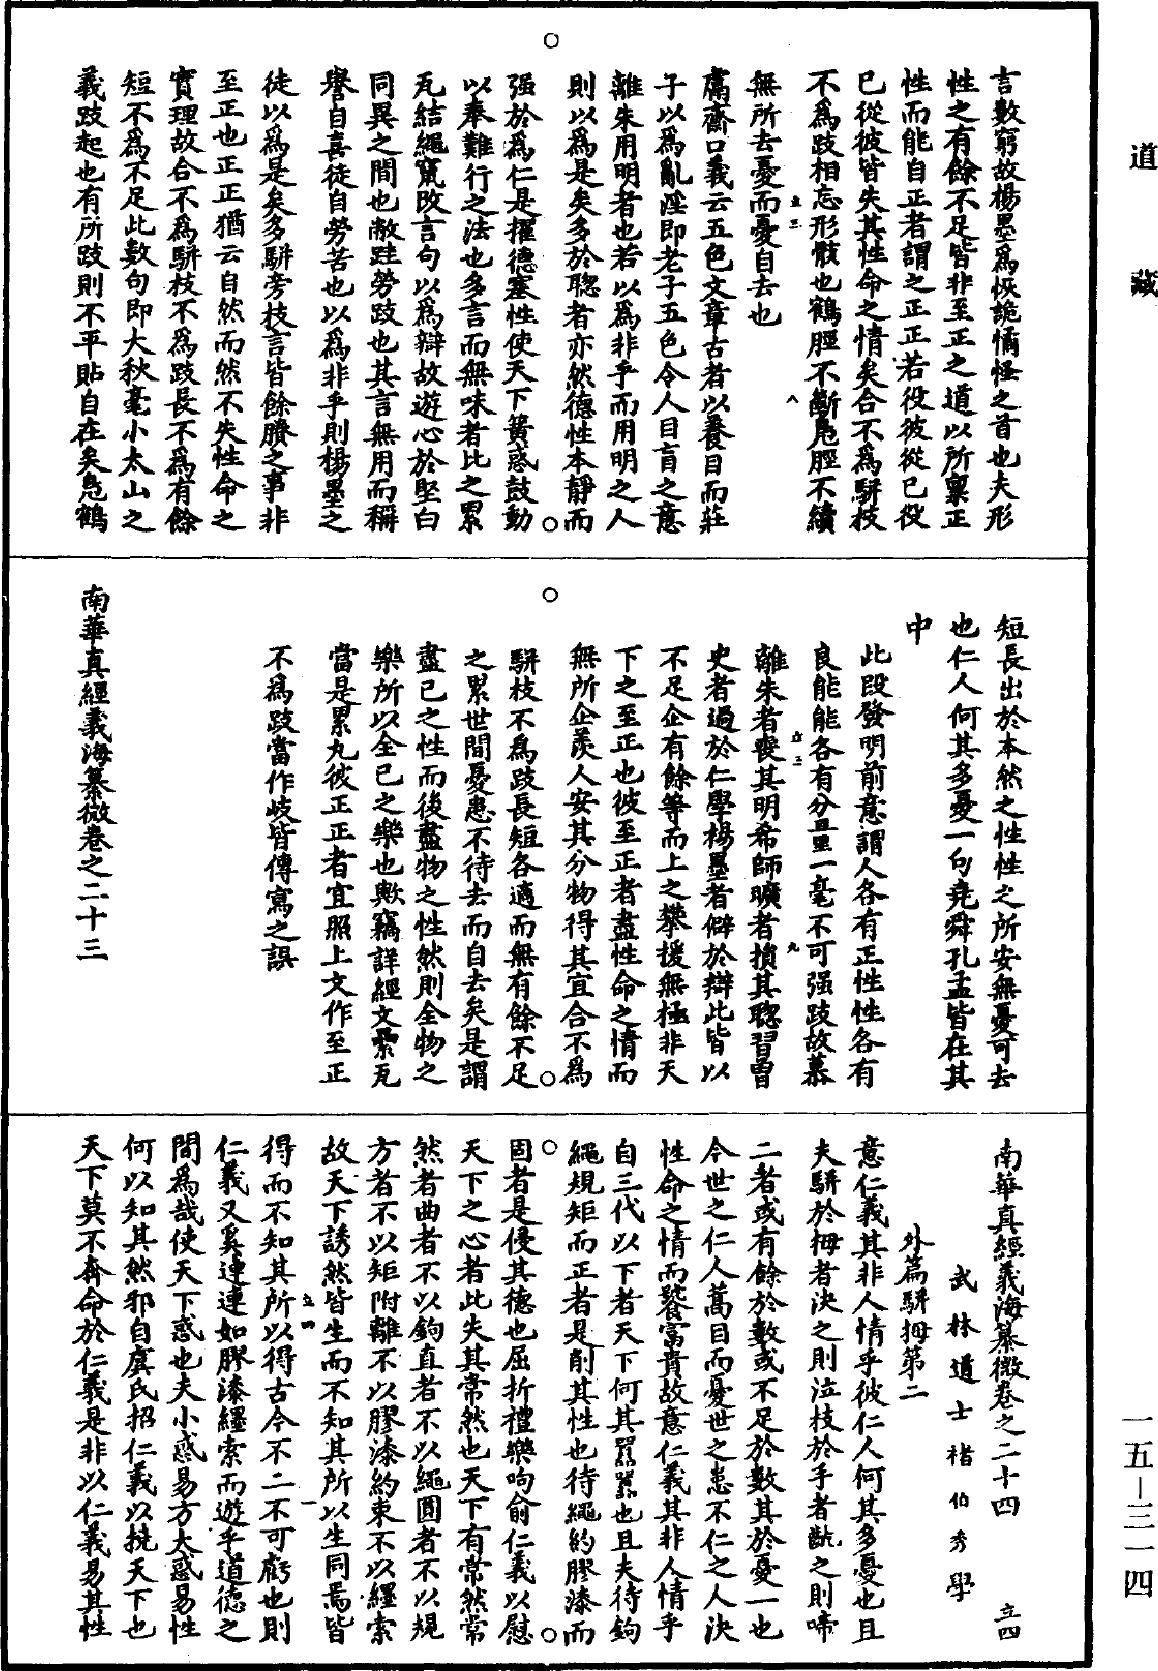 道藏
言數窮故楊墨爲恢詭憰怪之首也夫形
性之有餘不足皆非至正之道以所稟正
性而能自正者謂之正正若役彼從己役
已從彼皆失其性命之情矣合不爲駢枝
不爲跂相忘形骸也鶴脛不斷鳧脛不續
無所去憂而憂自去也
鬳齋口義云五色文章古者以養目而莊
子以爲亂淫即老子五色令人目盲之意
離朱用明者也若以爲非乎而用明之人
則以爲是矣多於聰者亦然德性本靜而
强於爲仁是擢德塞性使天下簧惑鼓動
以奉難行之法也多言而無味者比之累
瓦結繩竄改言句以爲辯故遊心於堅白
同異之間也敝跬勞跂也其言無用而稱
譽自喜徒自勞苦也以爲非乎則楊墨之
徒以爲是矣多駢旁枝言皆餘賸之事非
至正也正正猶云自然而然不失性命之
實理故合不爲駢枝不爲跂長不爲有餘
短不爲不足此數句即大秋毫小太山之
義跂起也有所跂則不平貼自在矣鳧鶴
短長出於本然之性性之所安無憂可去
也仁人何其多憂一句堯舜孔孟皆在其
中
此段發明前意謂人各有正性性各有
良能能各有分量一毫不可强跂故慕
離朱者喪其明希師曠者損其聰習曾
史者過於仁學楊墨者僻於辯此皆以
不足企有餘等而上之攀援無極非天
下之至正也彼至正者盡性命之情而
無所企羨人安其分物得其宜合不爲
駢枝不爲跂長短各適而無有餘不足
之累世間憂患不待去而自去矣是謂
盡已之性而後盡物之性然則全物之
樂所以全已之樂也歟竊詳經文纍瓦
當是累丸彼正正者宜照上文作至正
不爲跂當作歧皆傳寫之誤
南華真經義海纂微卷之二十三
南華真經義海纂微卷之二十四 立四
武林道士褚伯秀學
外篇駢拇第二
意仁義其非人情乎彼仁人何其多憂也且
夫駢於拇者決之則泣枝於手者齕之則啼
二者或有餘於數或不足於數其於憂一也
今世之仁人蒿目而憂世之患不仁之人決
性命之情而饕富貴故意仁義其非人情乎
自三代以下者天下何其囂囂也且夫待鉤
繩規矩而正者是削其性也待繩約膠漆而
固者是侵其德也屈折禮樂呴俞仁義以慰
天下之心者此失其常然也天下有常然常
然者曲者不以鉤直者不以繩圓者不以規
方者不以矩附離不以膠漆約束不以纆索
故天下誘然皆生而不知其所以生同焉皆
得而不知其所以得古今不二不可虧也則
仁義又奚連連如膠漆纆索而遊乎道德之
間爲哉使天下惑也夫小惑易方大惑易性
何以知其然邪自虞氏招仁義以撓天下也
天下莫不奔命於仁義是非以仁義易其性
一五—三一四